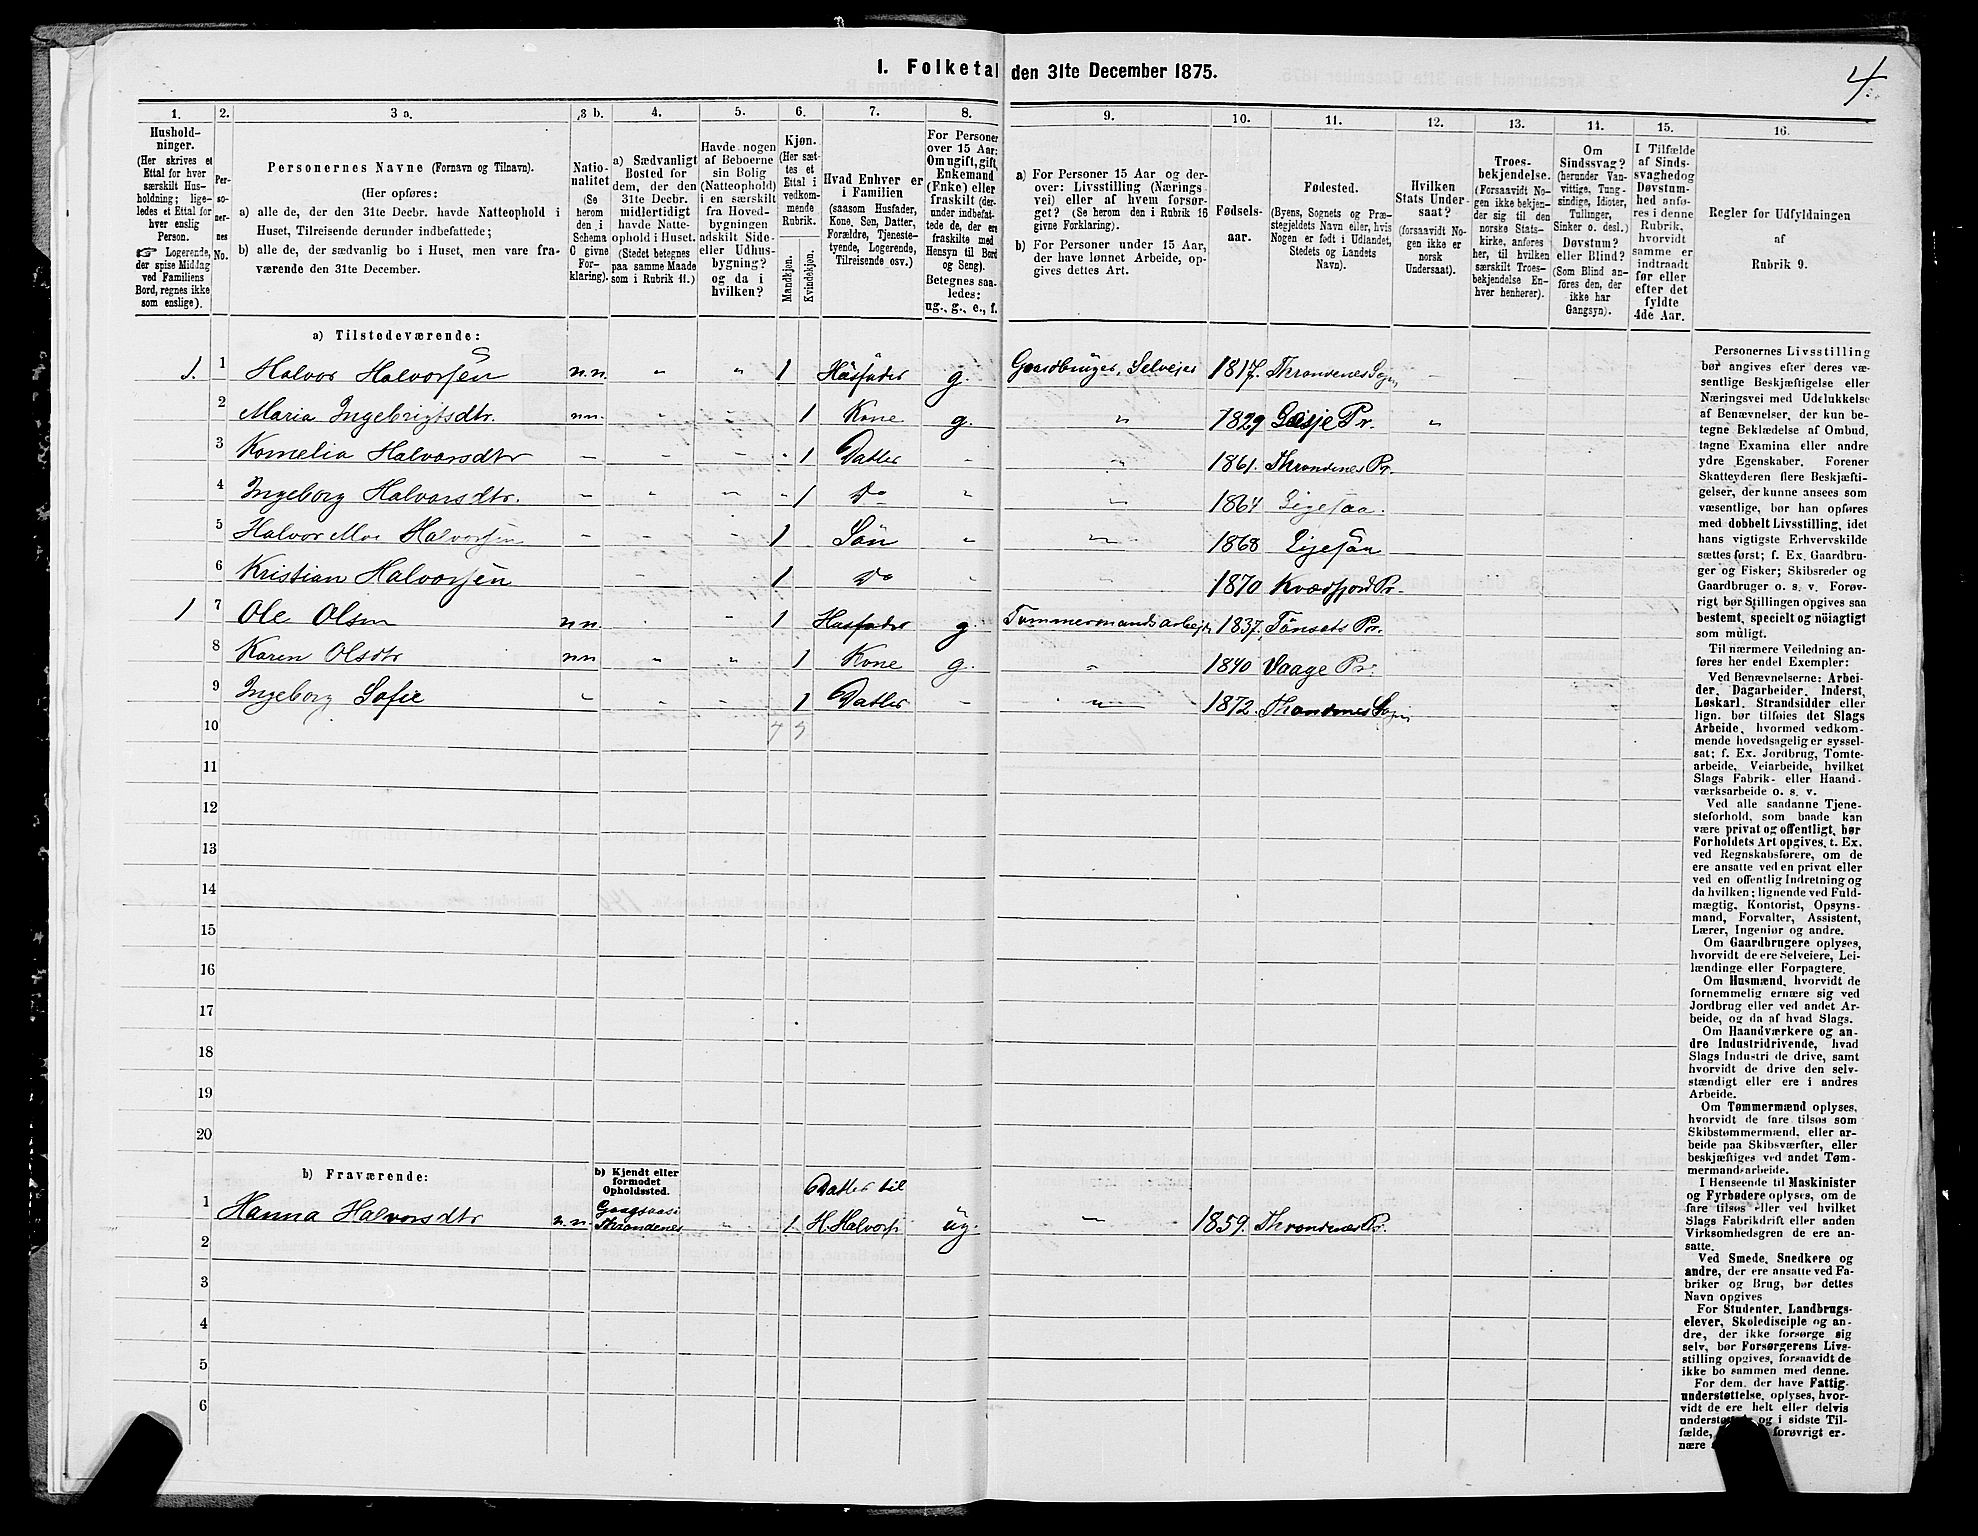 I. Folketal den 31te December 1875.
4.
1. 2. 3 a. 3 b. 4. 5. 6. 7. 8. 9. 10. 11. 12. 13. 14. 15. 16.
Hushold-
ninger.
(Her skrives et
Ettal for hver
særskilt Hus-
holdning; lige-
ledes et Ettal for
hver enslig
Person.
☞ Logerende,
der spise Middag
ved Familiens
Bord, regnes ikke
som enslige).
Per-
so-
ner-
nes
No.
Personernes Navne (Fornavn og Tilnavn).
(Her opføres:
a) alle de, der den 31te Decbr. havde Natteophold i
Huset, Tilreisende derunder indbefattede;
b) alle de, der sædvanlig bo i Huset, men vare fra-
værende den 31te December.
Natio-
nalitet
(Se
herom
den i
Schema
C givne
For-
klaring).
a) Sædvanligt
Bosted for
dem, der den
31te Decbr.
midlertidigt
havde Natte-
ophold i Huset.
(Stedet betegnes
paa samme Maade
som i Rubrik 11.)
Havde nogen
af Beboerne
sin Bolig
(Natteophold)
i en særskilt
fra Hoved-
bygningen
adskilt Side-
eller Udhus-
bygning?
og da i
hvilken?
Kjøn.
(Her sæt-
tes et
Ettal i
vedkom-
mende
Rubrik.
Mandkjøn.
Kvindekjøn.
Hvad Enhver er
i Familien
(saasom Husfader,
Kone, Søn, Datter,
Forældre, Tjeneste-
tyende, Logerende,
Tilreisende osv.)
For Personer
over 15 Aar:
Om ugift, gift,
Enkemand
(Enke) eller
fraskilt (der-
under indbefat-
tede de, der ere
fraskilte med
Hensyn til Bord
og Seng).
Betegnes saa-
ledes:
ug., g., e., f.
a) For Personer 15 Aar og der-
over: Livsstilling (Nærings-
vei) eller af hvem forsør-
get? (Se herom den i Rubrik 16
givne Forklaring).
b) For Personer under 15 Aar,
der have lønnet Arbeide, op-
gives dettes Art.
Fødsels-
aar.
Fødested.
(Byens, Sognets og Præ-
stegjeldets Navn eller, hvis
Nogen er født i Udlandet,
Stedets og Landets
Navn).
Hvilken
Stats Under-
saat?
(forsaavidt No-
gen ikke er
norsk
Undersaat).
Troes-
bekjendelse.
(Forsaavidt No-
gen ikke bekjen-
der sig til den
norske Stats-
kirke, anføres
her, til hvilken
særskilt Troes-
bekjendelse En-
hver henhører).
Om
Sindssvag?
(herunder Van-
vittige, Tung-
sindige, Idioter,
Tullinger,
Sinker o. desl.)
Døvstum?
eller Blind?
(Som Blind an-
føres den, der
ikke har
Gangsyn).
I Tilfælde
af Sinds-
svaghed og
Døvstum-
hed anfø-
res i denne
Rubrik,
hvorvidt
samme er
indtraadt
før eller
efter det
fyldte
4de Aar.
Regler for Udfyldningen
af
Rubrik 9.
a) Tilstedeværende:
1. 1 Halvor Halvorsen n.n. „ „ 1 Husfader g. Gaardbruger, Selveier 1817. Throndenes Sogn
2 Maria Ingebrigtsdtr. n.n. 1 Kone g. „ 1829 Giesje Pr. „
3 Kornelia Halvorsdtr 1 Datter 1861. Throndenes Pr.
4 Ingeborg Halvorsdtr. 1 Do 1864 Ligesaa.
5 Halvor Moe Halvorsen 1 Søn 1868 Ligesaa
6 Kristian Halvorsen 1 Do 1870 Kvædfjord Pr.
1 7 Ole Olsen n.n. 1 Husfader g. Tømmermandsarbejde 1837. Tönsets Pr.
8 Karen Olsdtr n.n „ „ 1 Kone g. „ 1840 Vaage Pr.
9 Ingeborg Sofie 1 Datter „ 1872. Throndenes Sogn
10
11
12
13
14
15
16
17
18
19
20
b) Fraværende:
b) Kjendt eller
formodet
Opholdssted.
Datter til
1 Hanna Halvorsdtr n.n. Throndenes 1. H. Halvors ug. 1859. Throndenes Pr.
2
3
4
5
6
Personernes Livsstilling
bør angives efter deres væ-
sentlige Beskjæftigelse eller
Næringsvei med Udelukkelse
af Benævnelser, der kun be-
tegne Beklædelse af Ombud,
tagne Examina eller andre
ydre Egenskaber. Forener
Skatteyderen flere Beskjæfti-
gelser, der kunne ansees som
væsentlige, bør han opføres
med dobbelt Livsstilling, idet
hans vigtigste Erhvervskilde
sættes først; f. Ex. Gaardbru-
ger og Fisker; Skibsreder og
Gaardbruger o. s. v. Forøv-
rigt bør Stillingen opgives saa
bestemt, specielt og nöiagtigt
som muligt.
Til nærmere Veiledning an-
føres her endel Exempler:
Ved Benævnelserne: Arbei-
der, Dagarbeider, Inderst,
Løskarl, Strandsidder eller
lign. bør tilføies det Slags
Arbeide, hvormed vedkom-
mende hovedsagelig er syssel-
sat; f. Ex. Jordbrug, Tomte-
arbeide, Veiarbeide, hvilket
Slags Fabrik- eller Haand-
værksarbeide o. s. v.
Ved alle saadanne Tjene-
steforhold, som baade kan
være privat og offentligt, bør
Forholdets Art opgives, t. Ex.
ved Regnskabsførere, om de
ere ansatte ved en privat eller
ved en offentlig Indretning og
da hvilken; lignende ved Fuld-
mægtig, Kontorist, Opsyns-
mand, Forvalter, Assistent,
Lærer, Ingeniør og andre.
Om Gaardbrugere oplyses,
hvorvidt de ere Selveiere, Lei-
lændinge eller Forpagtere.
Om Husmænd, hvorvidt de
fornemmelig ernære sig ved
Jordbrug eller ved andet Ar-
beide, og da af hvad Slags.
Om Haandværkere og an-
dre Industridrivende, hvad
Slags Industri de drive, samt
hvorvidt de drive den selv-
stændigt eller ere i andres
Arbeide.
Om Tømmermænd oplyses,
hvorvidt de fare tilsøs som
Skibstømmermænd, eller ar-
beide paa Skibsværfter, eller
beskjæftiges ved andet Tøm-
mermandsarbeide.
I Henseende til Maskinister
og Fyrbødere oplyses, om de
fare tilsøs eller ved hvilket
Slags Fabrikdrift eller anden
Virksomhedsgren de ere an-
satte.
Ved Smede, Snedkere og
andre, der ere ansatte ved Fa-
briker og Brug, bør dettes
Navn opgives
For Studenter, Landbrugs-
elever, Skoledisciple og an-
dre, der ikke forsørge sig
selv, bør Forsørgerens Livs-
stilling opgives, forsaavidt de
ikke bo sammen med denne.
For dem, der have Fattig-
understøttelse, oplyses, hvor-
vidt de ere helt eller delvis
og i sidste Til-
fælde, forøvrigt er-
nære